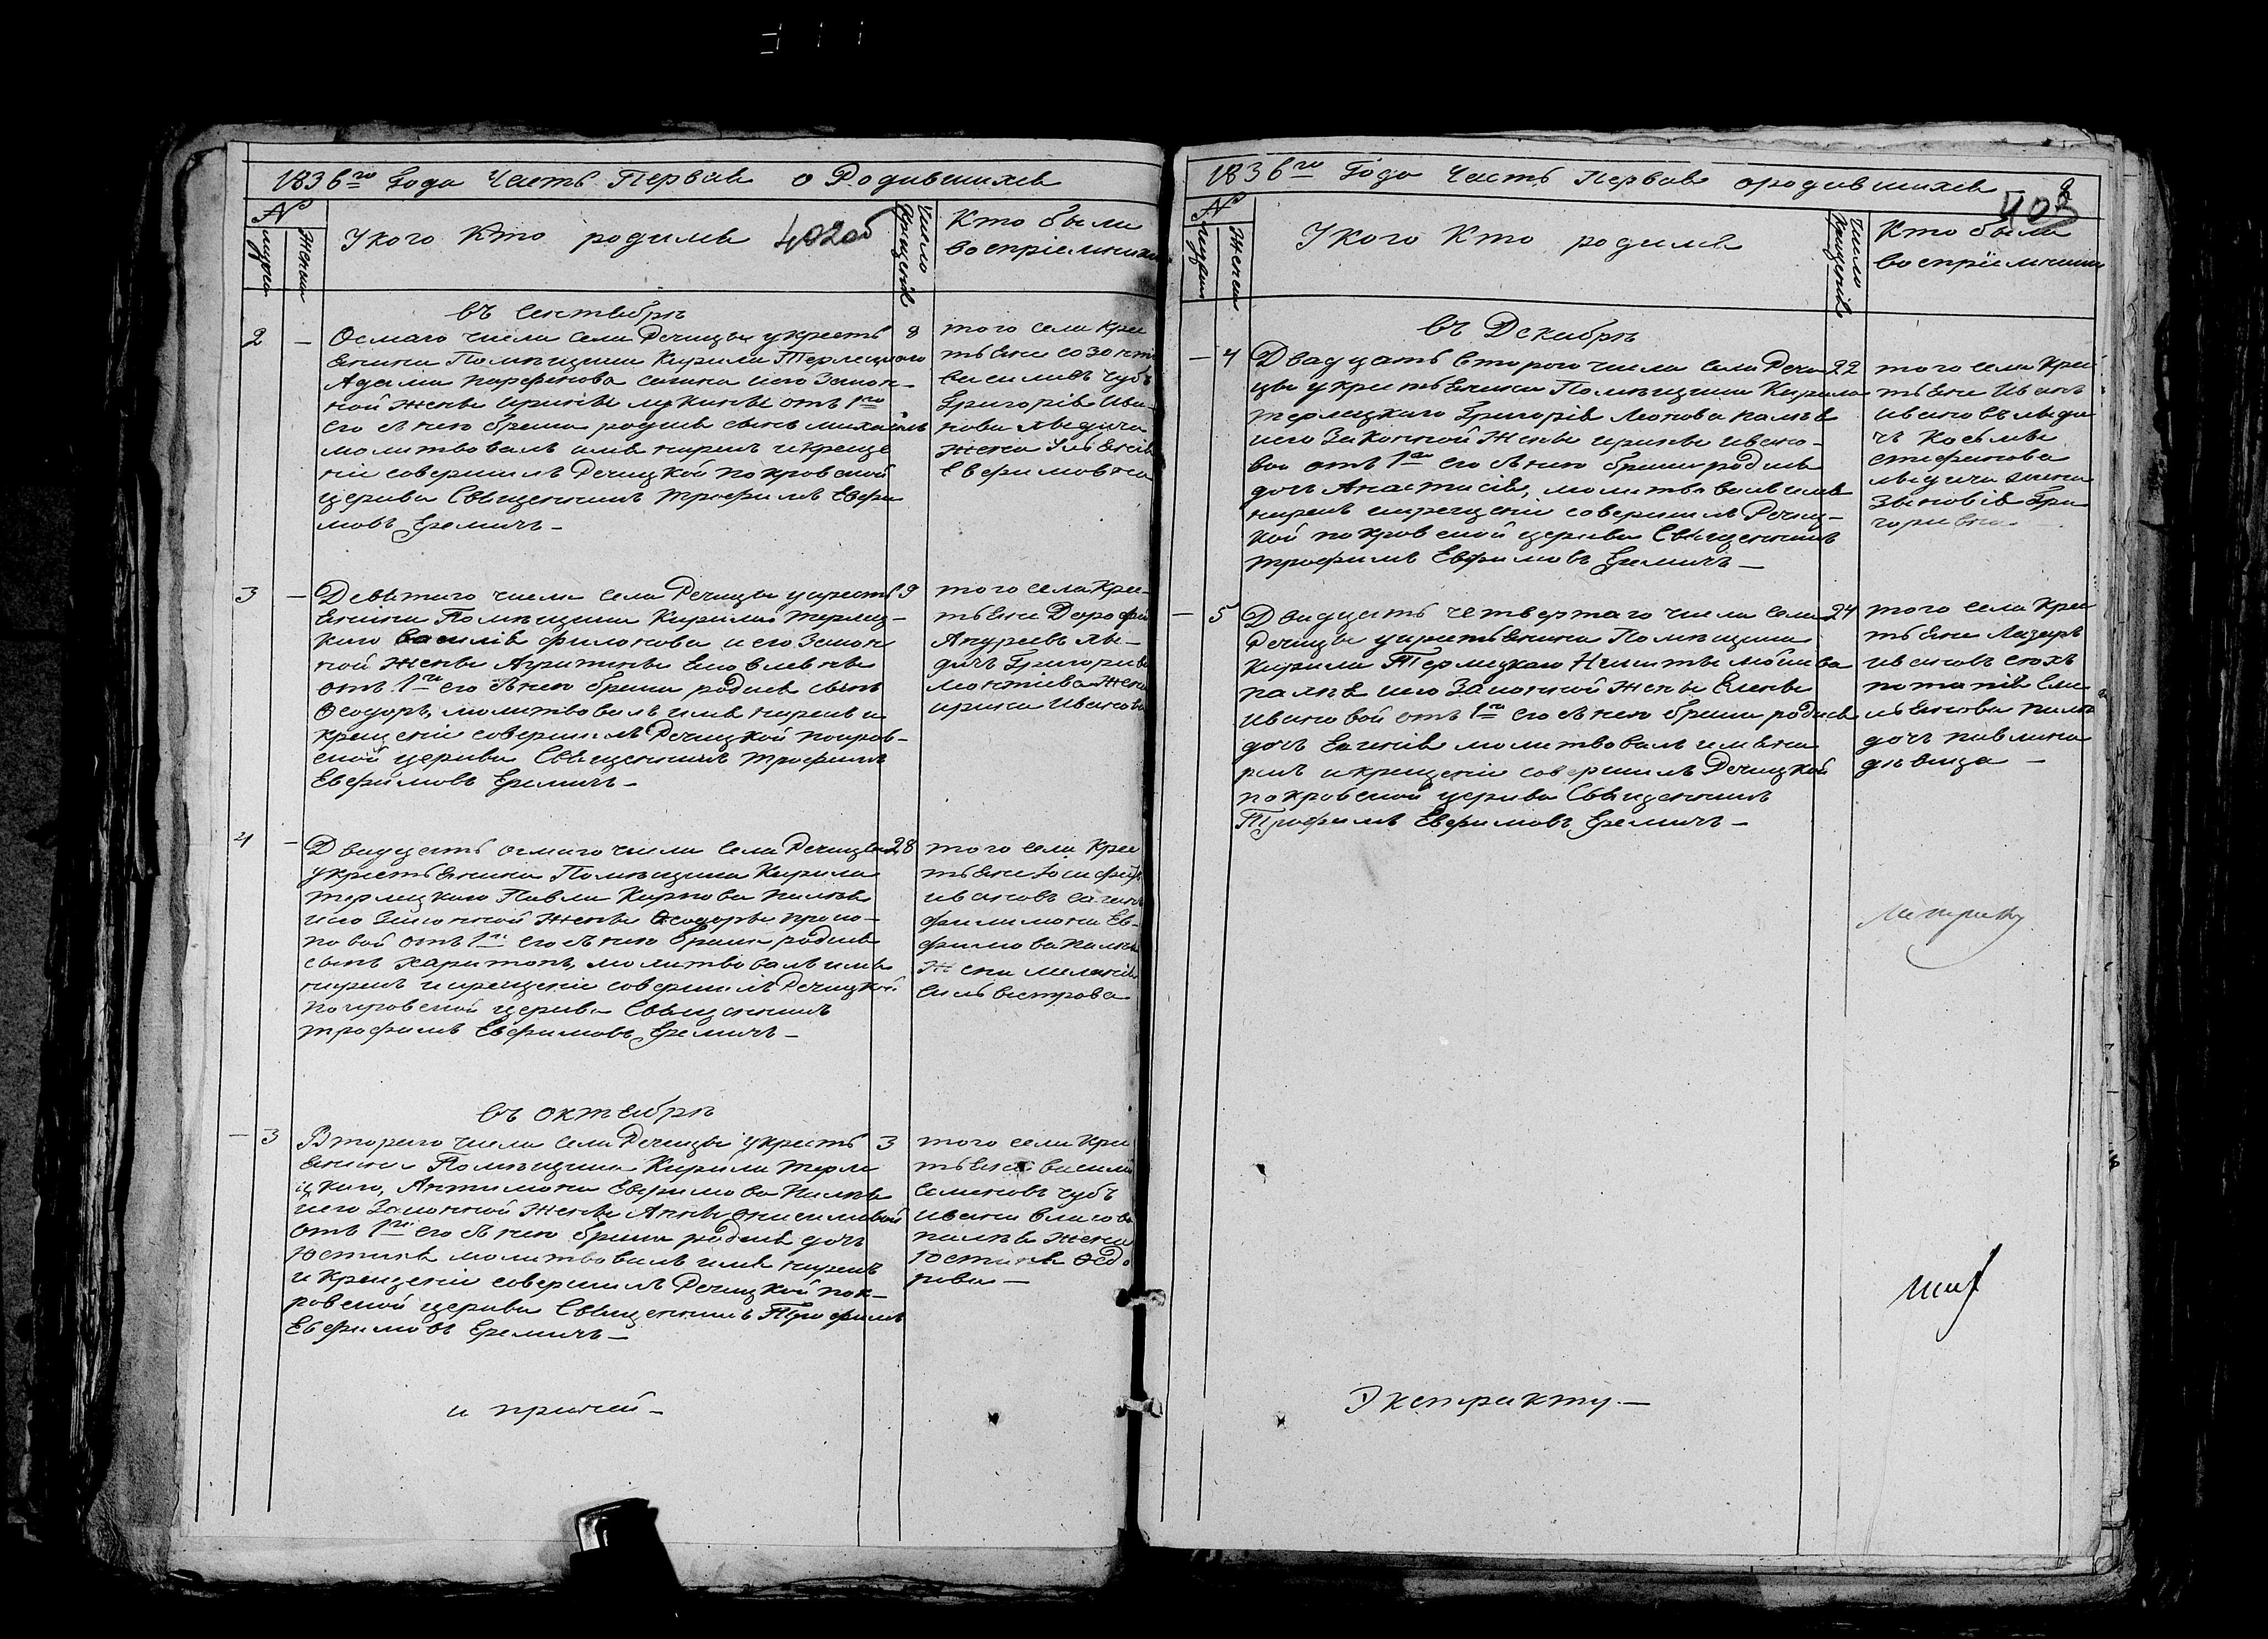 1836го Года Часть Первая о Родившихся
№
мужск
женск
У кого Кто родился 402об
Число крещенія
Кто были
воспріемники
въ сентябрѣ
2 — Осмаго числа села Речицы укресть 8
янина Помѣщика Кирила Терлецкого
Адама парфенова сачика иего Закон-
ной Жены ирины лукины отъ 1го
его снею брака родися сынъ михаилъ
молитвовалъ имя нарекъ икреще
ніе совершилъ Речицкой покровской
церкви Священникъ трофимъ Евфи
мовъ Еремичъ —
того села Крес
тьяне созонтъ
василивъ чубъ
Григорія Ива-
нова лѣдича
жена Ульянія
Евфимовна
3 — Девятаго числа села Речицы укресть 9
янина Помѣщика Кирила терлец-
каго василія филонова иего Закон
ной Жены Агрипины
отъ 1го его снею брака родися сынъ
Ѳеодоръ, молитвовалъ имя нарекъ и
крещеніе совершилъ Речицкой покров-
ской церкви Священникъ трофимъ
Евфимовъ Еремичъ —
того села Крес
тьяне Дорофей
Андреевъ лѣ-
дичъ Григорія
леонтіева Жена
ирина Иванова
4 — Двадцать осмаго числа Села Речицы 28
укрестьянина Помѣщика Кирила
терлецкаго Павла Карпова палѣя
иего Законной Жены Ѳеодоры проко-
повой отъ 1го его снею брака родися
сынъ харитонъ, молитвовалъ имя
нарекъ икрещеніе совершилъ Речицкой
покровской церкви Священникъ
трофимъ Евфимовъ Еремичъ —
того села Крес
тьяне Іосифъ
ивановъ сачикъ
филимона Ев-
фимова палѣя
Жена меланія
Сильвестрова
въ октябрѣ
— 3 Втораго числа села Речицы укресть 3
янина Помѣщика Кирила терле
цкаго, Антимона Евфимова Палѣя
иего Законной Жены Анны онисимовой
отъ 1го его снею брака родися дочь
Юстинія молитвовалъ имя нарекъ
и крещеніе совершилъ Речицкой пок-
ровской церкви Священникъ Трофимъ
Евфимовъ Еремичъ —
того села Крес
тьяне василій
Семеновъ чубъ
ивана власова
палѣя жена
Юстинія Ѳедо
рова —
и причей —
1836го Года Часть Первая ородившихся
403
№
мужск
женск
У кого Кто родился
Число крещенія
Кто были
воспріемники
въ Декабрѣ
— 4 Двадцать Втораго числа Села Речи 22
цы укрестьянина Помѣщика Кирила
терлецкаго Григорія Леонова палѣя
иего Законной Жены ирины ивано-
вой отъ 1го его снею брака родися
дочь Анастасія, молитвовалъ имя
нарекъ икрещеніе совершилъ Речиц-
кой покровской церкви Священникъ
трофимъ Евфимовъ Еремичъ —
того села Крес
тьяне Иванъ
ивановъ лѣди
чъ Косьмы
стефанова
лѣдича жена
Зѣновія Гри
горивна
— 5 Двадцать четвертаго числа Села 24
Речицы укрестьянина Помѣщика
Кирила Терлецкаго Никиты
палѣя иего Законной Жены Елены
ивановой отъ 1го его снею брака родися
дочь Евгенія молитвовалъ имя на
рекъ икрещеніе совершилъ Речицкой
покровской церкви Священникъ
Трофимъ Евфимовъ Еремичъ —
того села Крес
тьяне Лазарь
ивановъ
потапія Еме
льянова палѣя
дочь павлина
дѣвица —
Экстракту —